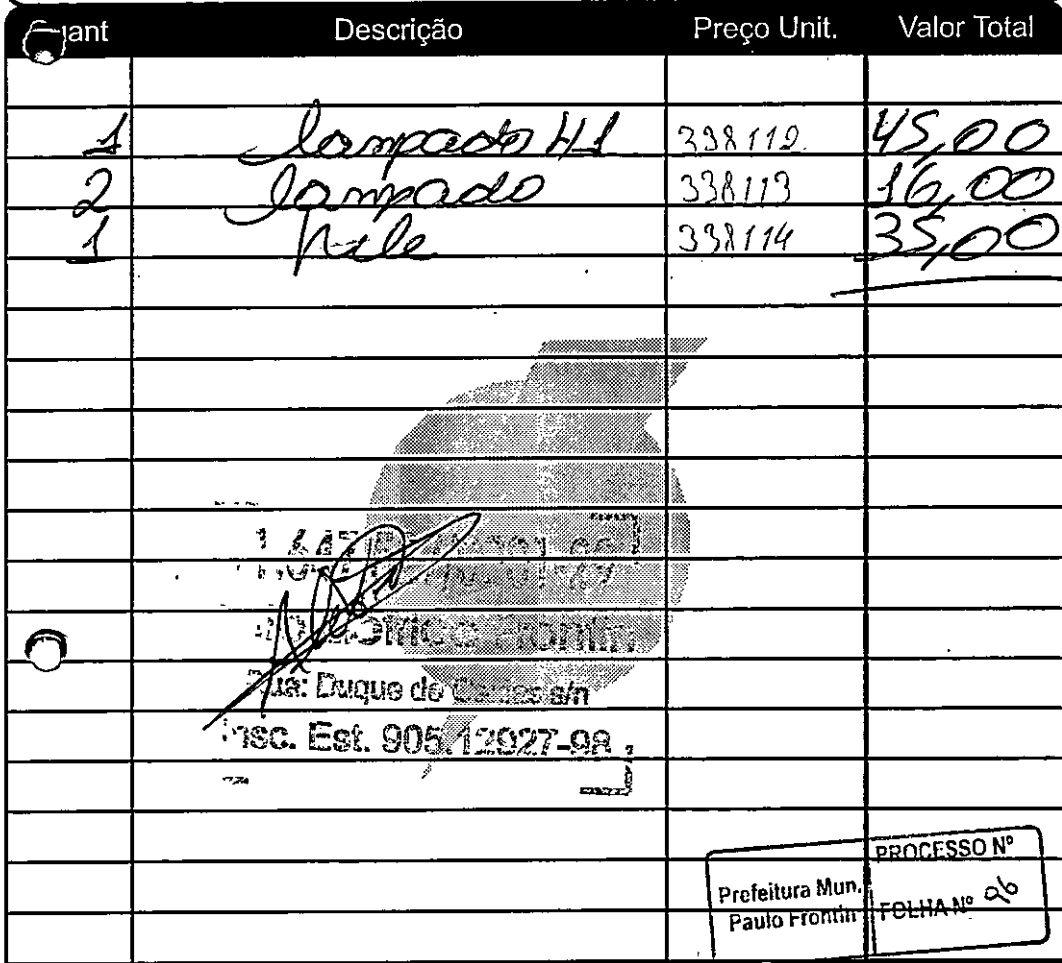 Quant Descrição Preço Unit. Valor Total
1 lampada H1 338112 45,00
2 lampada 338113 16,00
1 rele 338114 35,00
Rua: Duque de Caxias s/n
Insc. Est. 905.12927-98
PROCESSO Nº
Prefeitura Mun.
Paulo Frontin
FOLHA Nº 26